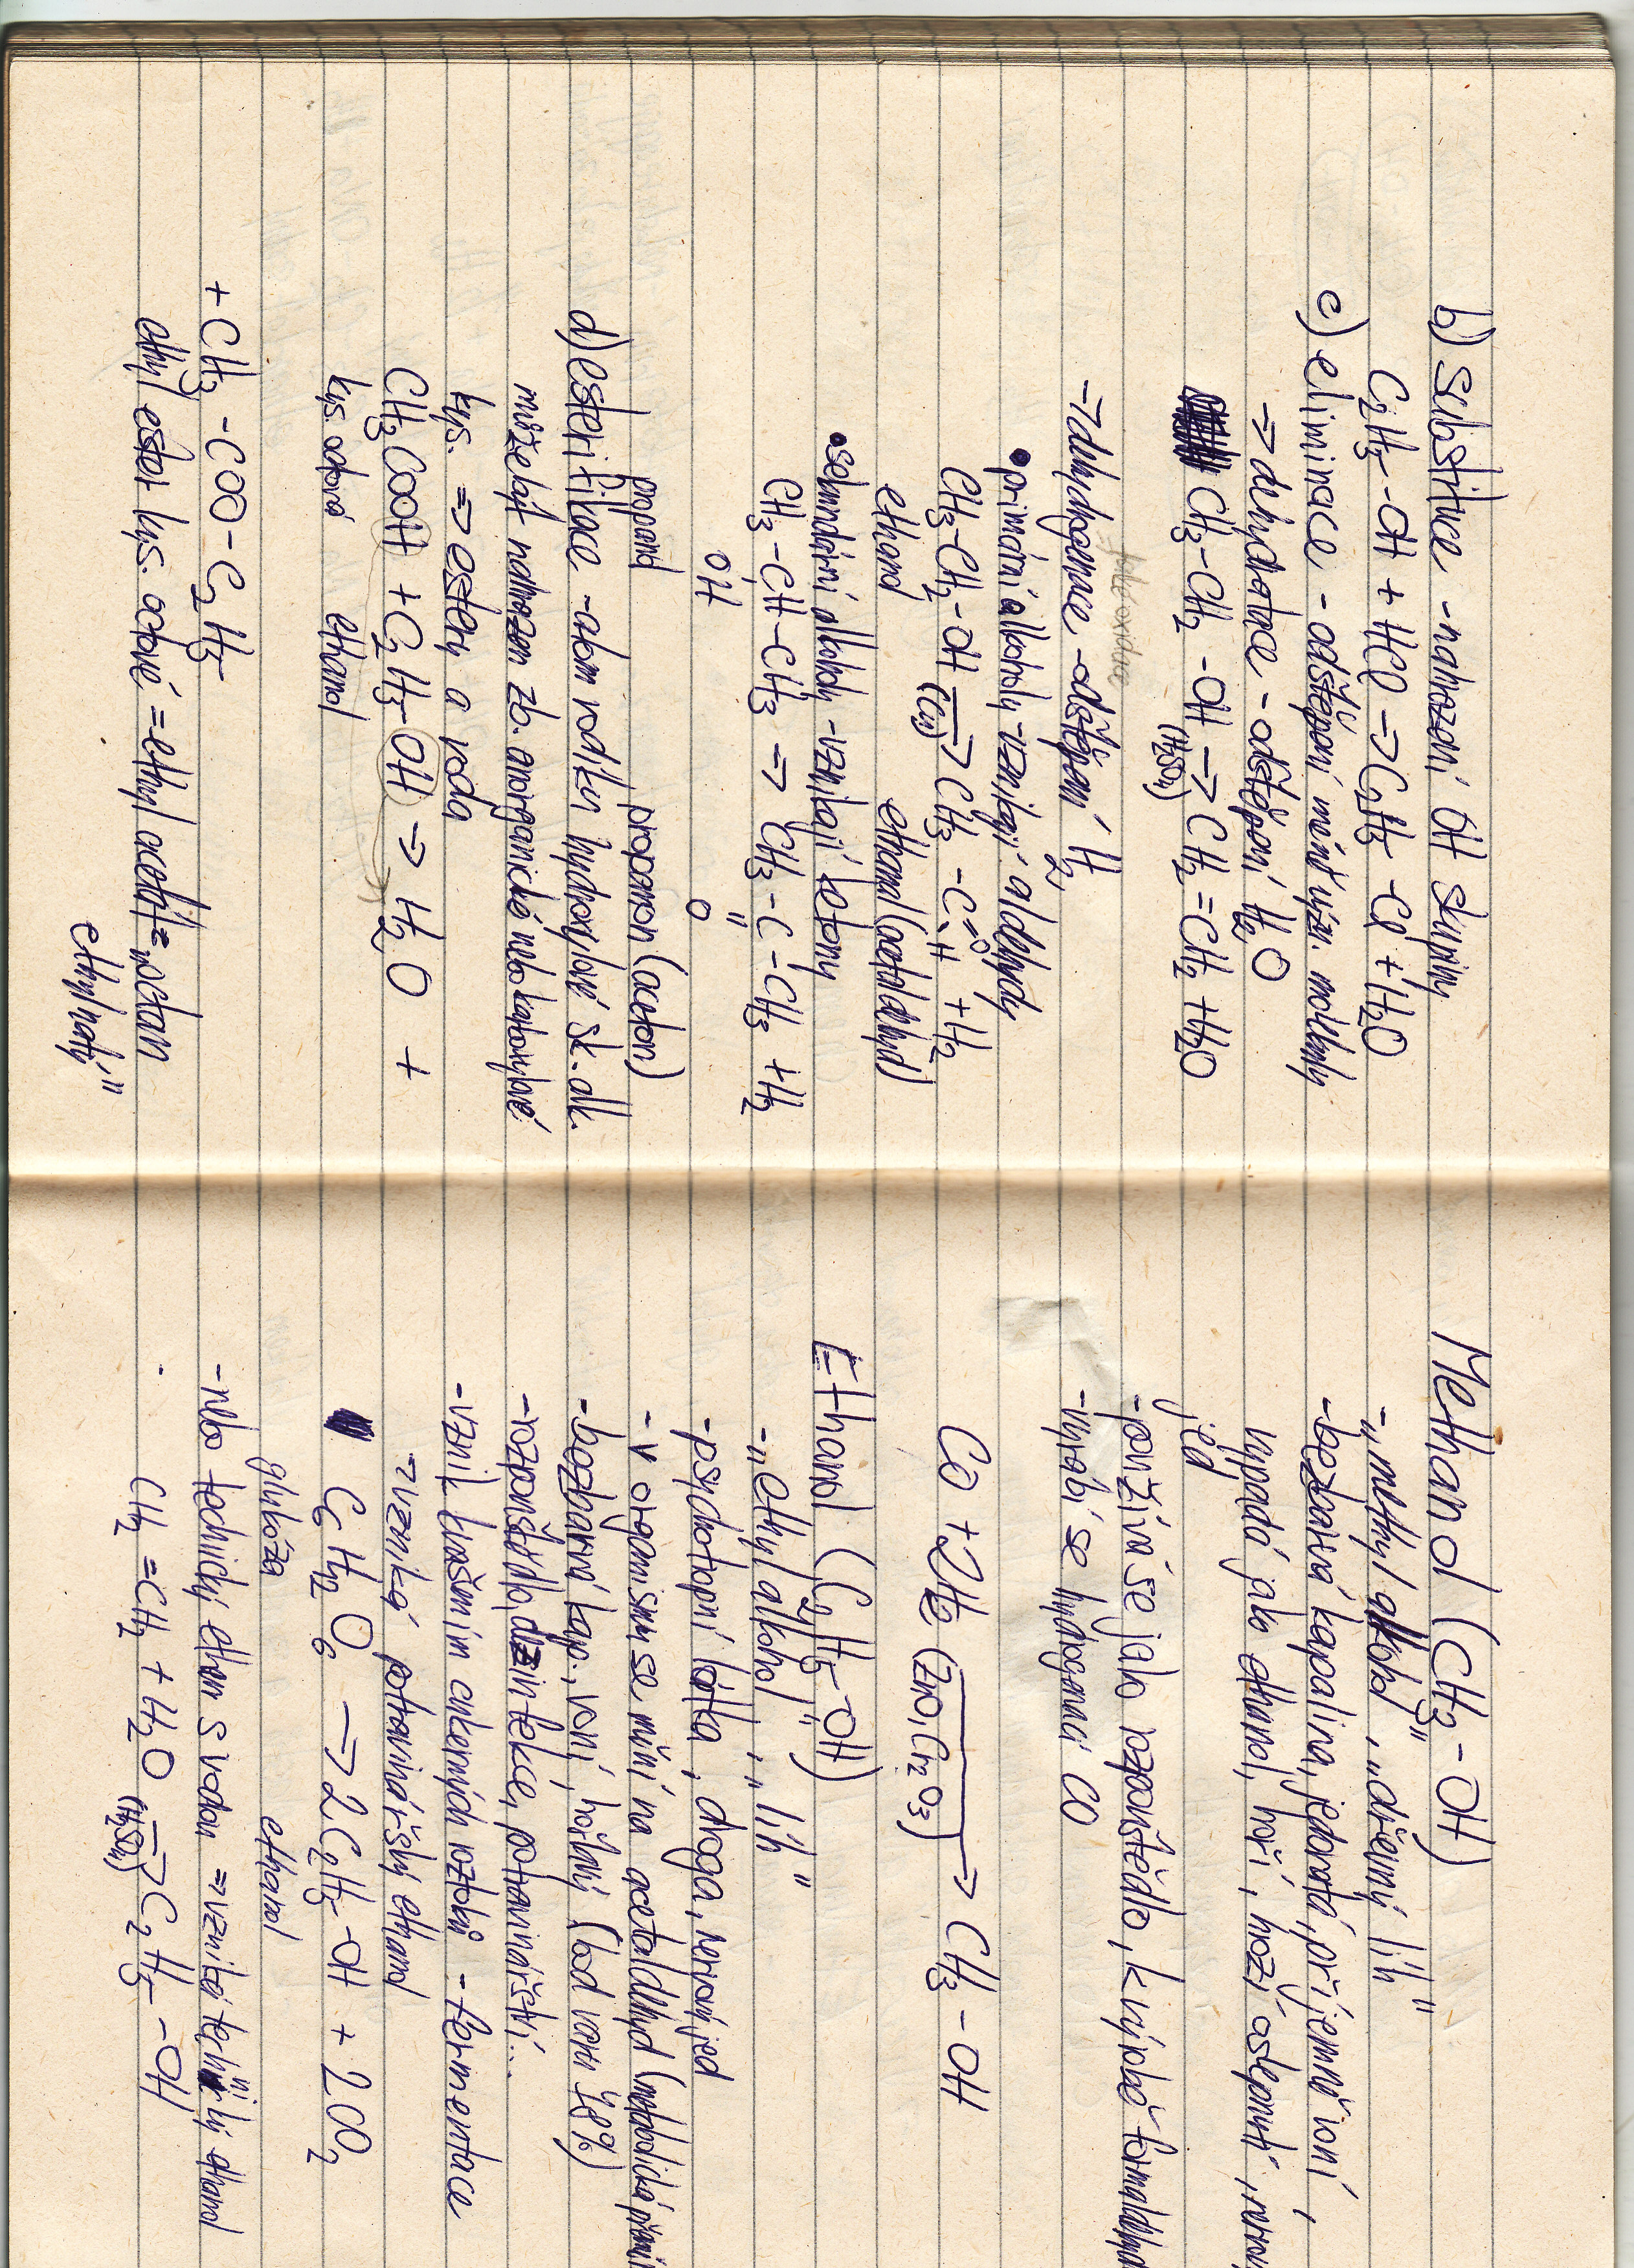 b) substituce - nahrazení OH skupiny
C₂H₅-OH + HCl → C₂H₅-Cl + H₂O
c) eliminace - odštěpení méně význ. molekuly
→ dehydratace - odštěpení H₂O
CH₃-CH₂-OH → CH₂=CH₂ + H₂O
(H₂SO₄)
→ dehydrogenace - odštěpení H₂
• primární alkoholy - vznikají aldehydy
CH₃-CH₂-OH → CH₃-C=O H + H₂
(Cu)
ethanol ethanal (acetaldehyd)
• sekundární alkoholy - vznikají ketony
CH₃-CH-CH₃ → CH₃-C-CH₃ + H₂
OH O
propanol propanon (aceton)
d) esterifikace - atom vodíku hydroxylové sk. alk.
může být nahrazen zb. anorganické nebo karboxylové
kys. → estery a voda
CH₃COOH + C₂H₅-OH → H₂O +
kys. octová ethanol
+ CH₃-COO-C₂H₅
ethyl ester kys. octové = ethyl acetát = "octan
ethylnatý"
Methanol (CH₃-OH)
- "methyl alkohol", "dřevný líh"
- bezbarvá kapalina, jedovatá, příjemně voní,
vypadá jako ethanol, hoří, hrozí oslepnutí,
jed
- používá se jako rozpouštědlo, k výrobě formaldehyd
- vyrábí se hydrogenací CO
CO + 2H₂ → CH₃-OH
(ZnO, Cr₂O₃)
Ethanol (C₂H₅-OH)
- "ethyl alkohol", "líh"
- psychotropní látka, droga, nervový jed
- v organismu se mění na acetaldehyd (metabolická
- bezbarvá kap., voní, hořlavý (bod varu 78%)
- rozpouštědlo, dezinfekce, potravinářství...
- vznik kvašením cukerných roztoků - fermentace
→ vzniká potravinářský ethanol
C₆H₁₂O₆ → 2C₂H₅-OH + 2CO₂
glukóza ethanol
- nebo technický ethen s vodou → vzniká technický ethanol
CH₂=CH₂ + H₂O → C₂H₅-OH
(H₂SO₄)